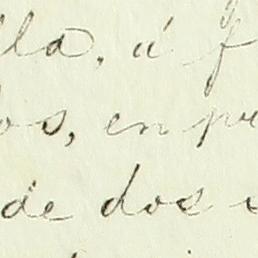 lla, á f
os, en pr
de dos